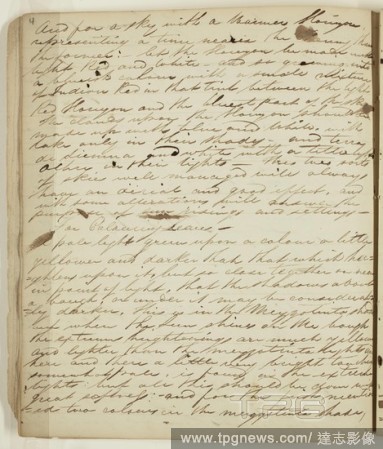 And for a sky with a warmer Horizon
representing a time nearer the
the former: let the Horizon be made with
light Red and White - and so
colour with a small
of Indian Red in that tint between the light
Red Horizon and the blue part of the Sky
The Clouds upon the Horizon should be
made up with blue and White, with
only in their shades - and terra
and white with a little
in their lights - this two sorts
of skies well managed will always
have an aireial and good effect, and
with some alterations will answer the
purpose of risings and settings -
In Colouring leaves -
pale light green upon a colour a little
yellower and darker than that which
upon it, but so close together or near
in point of light, that the shadows about
a bough or under it may be considerab-
ly darker. This is in the Mezzotinto
when the sun shines on the bough
the extreme heightenings are much yellower
and lighter than the mezzotinto lights
here and there a little very bright
in the extreme
lights - but all this should be done with
great softness - and for
two colours in the mezzotinto shade,
TPG
www.tpgnews.com / 達志影像